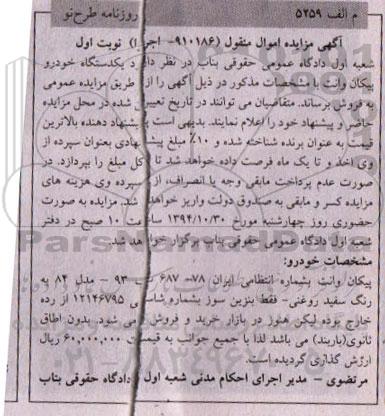 م الف ۵۲۵۹
روزنامه طرح نو
آگهی مزایده اموال منقول (۹۱۰۱۸۶- اجرا) نوبت اول
شعبه اول دادگاه عمومی حقوقی بناب در نظر دارد یکدستگاه خودرو
پیکان وانت با مشخصات مذکور در ذیل آگهی را از طریق مزایده عمومی
به فروش برساند. متقاضیان می توانند در تاریخ تعیین شده در محل مزایده
حاضر و پیشنهاد خود را اعلام نمایند. بدیهی است پیشنهاد دهنده بالاترین
قیمت به عنوان برنده شناخته شده و ۱۰٪ مبلغ پیشنهادی بعنوان سپرده از
وی اخذ و تا یک ماه فرصت داده خواهد شد تا کل مبلغ را بپردازد. در
صورت عدم پرداخت مابقی وجه یا انصراف، از سپرده وی هزینه های
مزایده کسر و مابقی به صندوق دولت واریز خواهد شد. مزایده به صورت
حضوری روز چهارشنبه مورخ ۱۳۹۴/۱۰/۳۰ ساعت ۱۰ صبح در دفتر
شعبه اول دادگاه عمومی حقوقی بناب برگزار خواهد شد.
مشخصات خودرو:
پیکان وانت بشماره انتظامی ایران ۷۸- ۶۸۷ ۹۳ - مدل ۸۴ به
رنگ سفید روغنی- فقط بنزین سوز بشماره شاسی ۱۲۱۴۶۷۹۵ از رده
خارج بوده لیکن هنوز در بازار خرید و فروش می شود. بدون اطاق
ثانوی(باربند) می باشد لذا با جمیع جوانب به قیمت ۶۰,۰۰۰,۰۰۰ ریال
ارزش گذاری گردیده است.
مرتضوی - مدیر اجرای احکام مدنی شعبه اول دادگاه حقوقی بناب
ParsNamadData